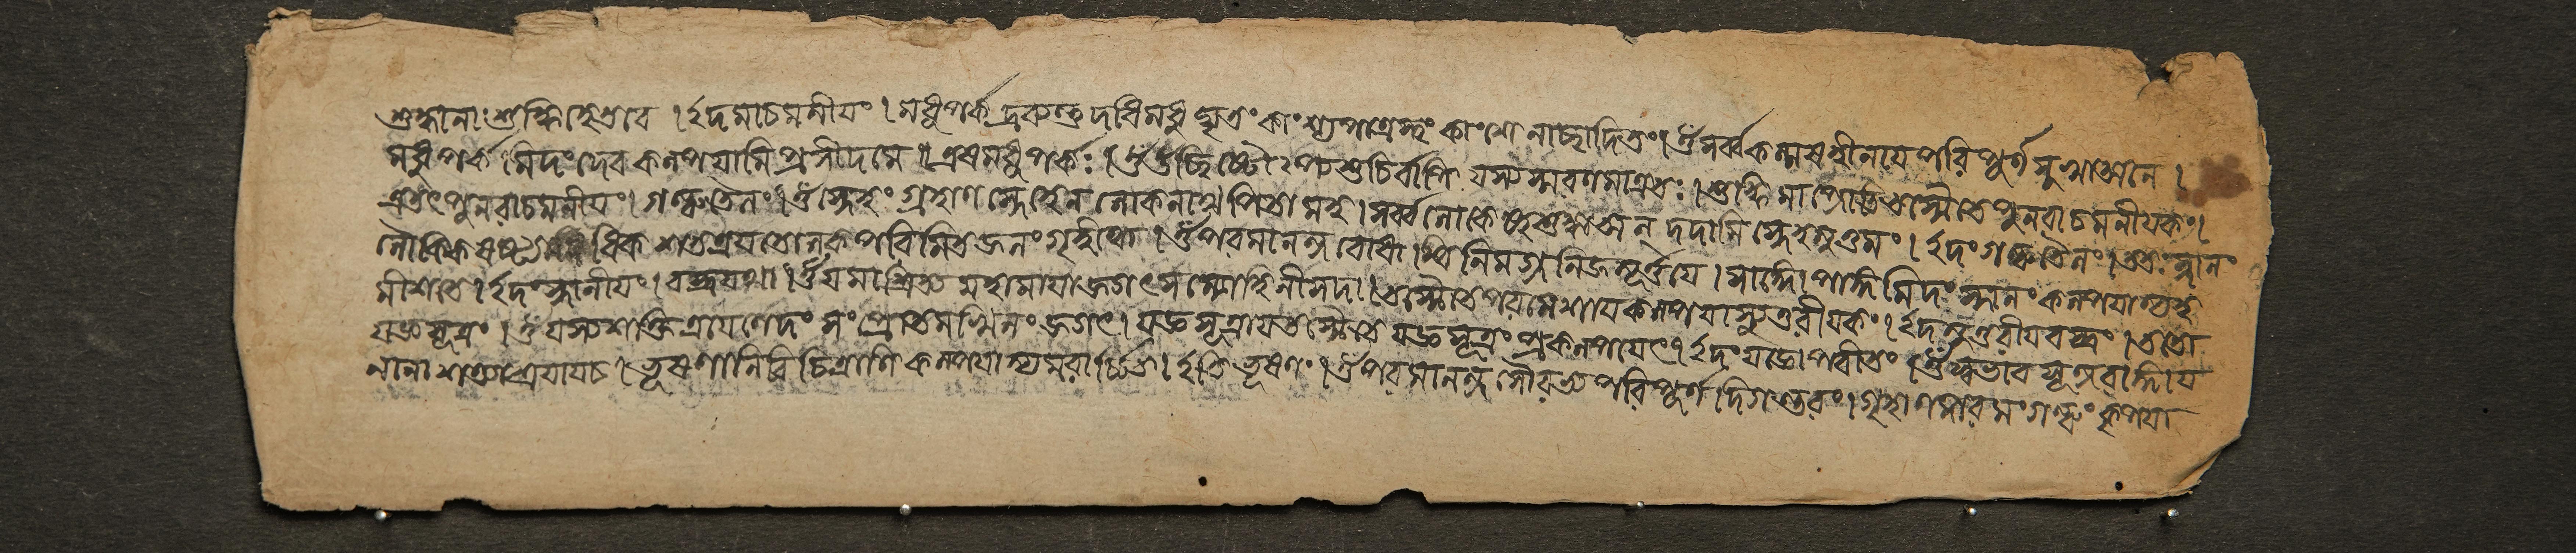 শুদ্ধানাং শুদ্ধিহেতবে । ইদমাচমনীয়ং । মধুপর্কদ্রব্যন্তু দধিমধুঘৃতং কাংশ্যপাত্রস্থং কাংশেনাচ্ছাদিতং । ওঁ সর্ব্বকল্মষহীনায় পরিপূর্ণসুখাত্মনে ।
মধুপর্কমিদং দেব কল্পয়ামি প্রসীদ মে । এষ মধুপর্কঃ । ওঁ উচ্ছিষ্টোঽপ্যশুচির্বাপি যস্য স্মরণমাত্রতঃ । শুদ্ধিমাপ্নোতি তস্মৈ তে পুনরাচমনীয়কং ।
এতৎ পুনরাচমনীয়ং । গন্ধতৈলং । ওঁ স্নেহং গৃহাণ স্নেহেন লোকনাথ পিতামহ । সর্ব্বলোকেষু শুদ্ধাত্মন্ দদামি স্নেহমুত্তমং । ইদং গন্ধতৈলং । ততঃ স্নানং
লৌকিকষষ্ট্যধিকশতত্রয়তোলকপরিমিতজলং গৃহীত্বা । ওঁ পরমানন্দবোধাব্ধিনিমগ্ননিজমূর্ত্তয়ে । সাঙ্গোপাঙ্গমিদং স্নানং কল্পয়াম্যহ
মীশ তে । ইদং স্নানীয়ং । বস্ত্রং যথা । ওঁ যমাশ্রিত্য মহামায়া জগৎসম্মোহিনী সদা । তস্মৈ তে পরমেশায় কল্পয়াম্যুত্তরীয়কং । ইদমুত্তরীয়বস্ত্রং । ততো
যজ্ঞসূত্রং । ওঁ যস্য শক্তিত্রয়েণেদং সংপ্রোতমখিলং জগৎ । যজ্ঞসূত্রায় তস্মৈ তে যজ্ঞসূত্রং প্রকল্পয়েৎ । ইদং যজ্ঞোপবীতং । ওঁ স্বভাবসুন্দরাঙ্গায়
নানাশক্ত্যাশ্রয়ায় চ । ভূষণানি বিচিত্রাণি কল্পয়াম্যমরার্চ্চিত । ইতি ভূষণং । ওঁ পরমানন্দসৌরভ্যপরিপূর্ণদিগন্তরং । গৃহাণ পরমং গন্ধং কৃপয়া